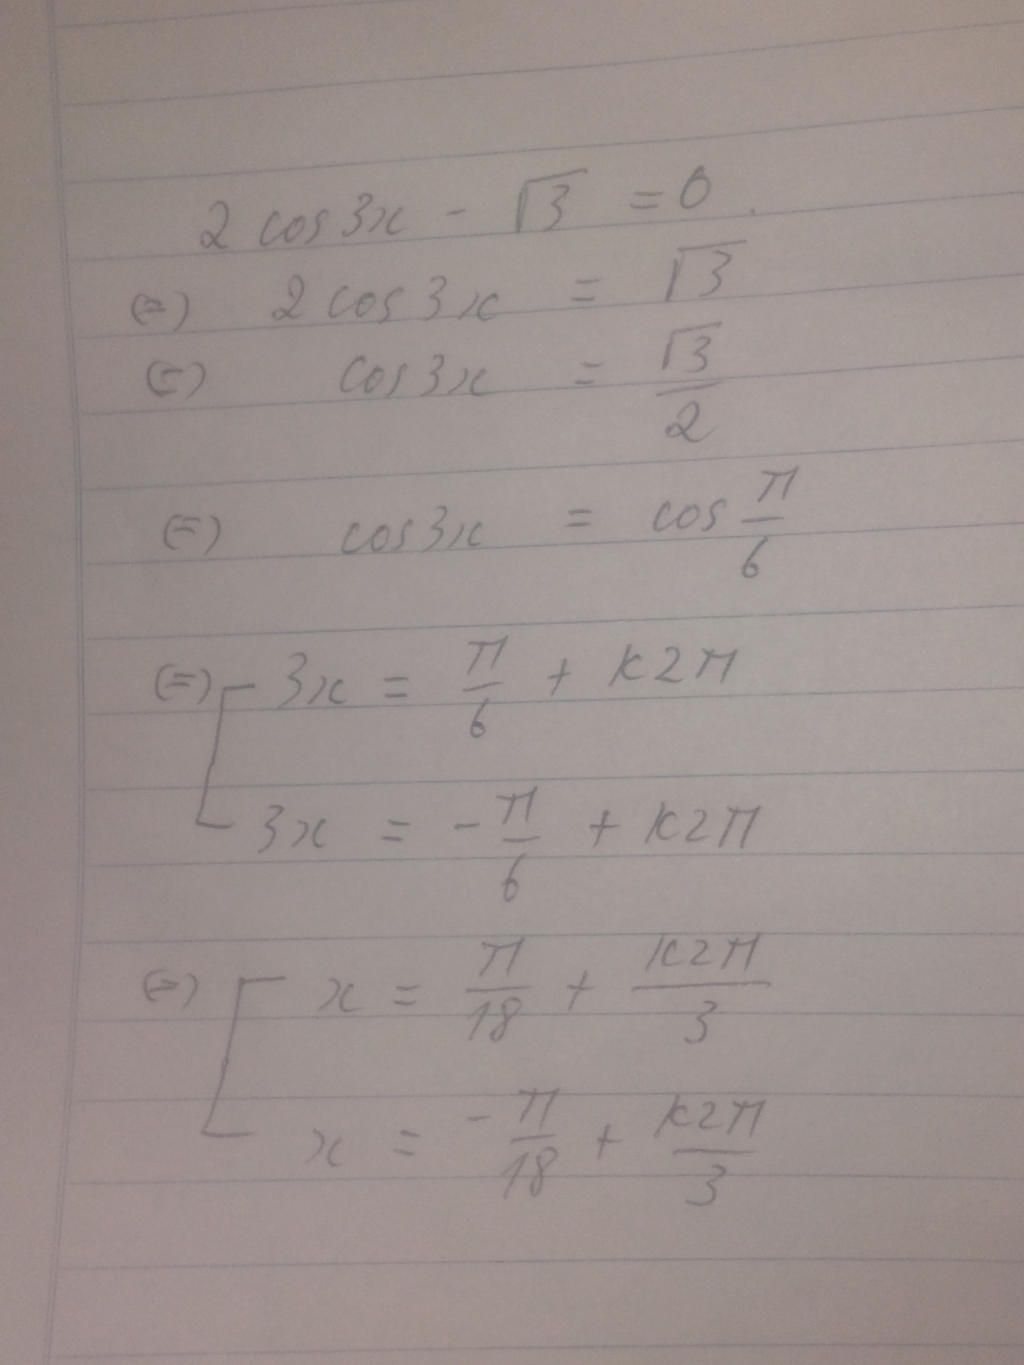 2 cos3x - √3 = 0.
(=) 2 cos3x = √3
(=) cos3x = √3/2
(=) cos3x = cos π/6
(=) [ 3x = π/6 + k2π
3x = -π/6 + k2π
(=) [ x = π/18 + k2π/3
x = -π/18 + k2π/3